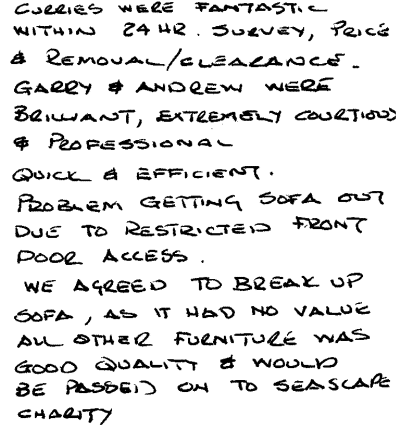 CURRIES WERE FANTASTIC
WITHIN 24 HR. SURVEY, PRICE
& REMOVAL/CLEARANCE.
GARRY & ANDREW WERE
BRILLIANT, EXTREMELY COURTIOUS
& PROFESSIONAL
QUICK & EFFICIENT.
PROBLEM GETTING SOFA OUT
DUE TO RESTRICTED FRONT
DOOR ACCESS.
WE AGREED TO BREAK UP
SOFA, AS IT HAD NO VALUE
ALL OTHER FURNITURE WAS
GOOD QUALITY & WOULD
BE PASSED ON TO SEASCAPE
CHARITY